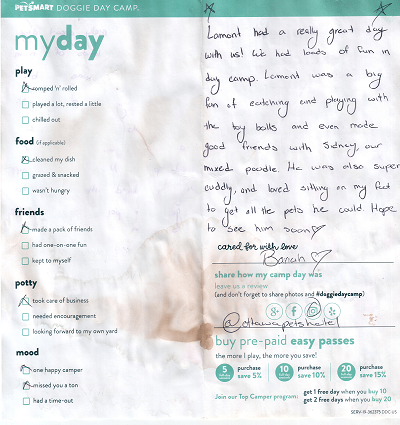 PETSMART DOGGIE DAY CAMP.
myday
play
romped 'n' rolled
played a lot, rested a little
chilled out
food (if applicable)
cleaned my dish
grazed & snacked
wasn't hungry
friends
made a pack of friends
had one-on-one fun
kept to myself
potty
took care of business
needed encouragement
looking forward to my own yard
mood
one happy camper
missed you a ton
had a time-out
Lamont had a really great day
with us! We had loads of fun in
day camp. Lamont was a big
fan of catching and playing with
the toy balls and even made
good friends with Sidney, our
mixed poodle. He was also super
cuddly, and loved sitting on my feet
to get all the pets he could. Hope
to see him soon
cared for with love
share how my camp day was
leave us a review
(and don't forget to share photos and #doggiedaycamp)
@ottawapetshotel
buy pre-paid easy passes
the more I play, the more you save!
5 purchase save 5%
10 purchase save 10%
20 purchase save 15%
Join our Top Camper program:
get 1 free day when you buy 10
get 2 free days when you buy 20